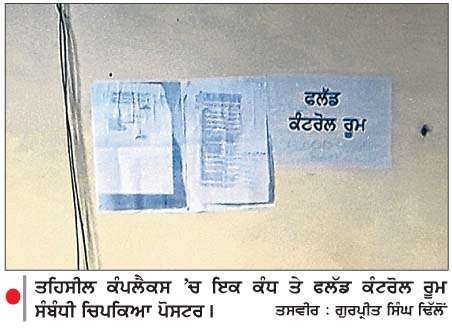 ਫਲੱਡ
ਕੰਟਰੋਲ ਰੂਮ
ਤਹਿਸੀਲ ਕੰਪਲੈਕਸ 'ਚ ਇਕ ਕੰਧ ਤੇ ਫਲੱਡ ਕੰਟਰੋਲ ਰੂਮ
ਸੰਬੰਧੀ ਚਿਪਕਿਆ ਪੋਸਟਰ। ਤਸਵੀਰ : ਗੁਰਪ੍ਰੀਤ ਸਿੰਘ ਢਿੱਲੋਂ